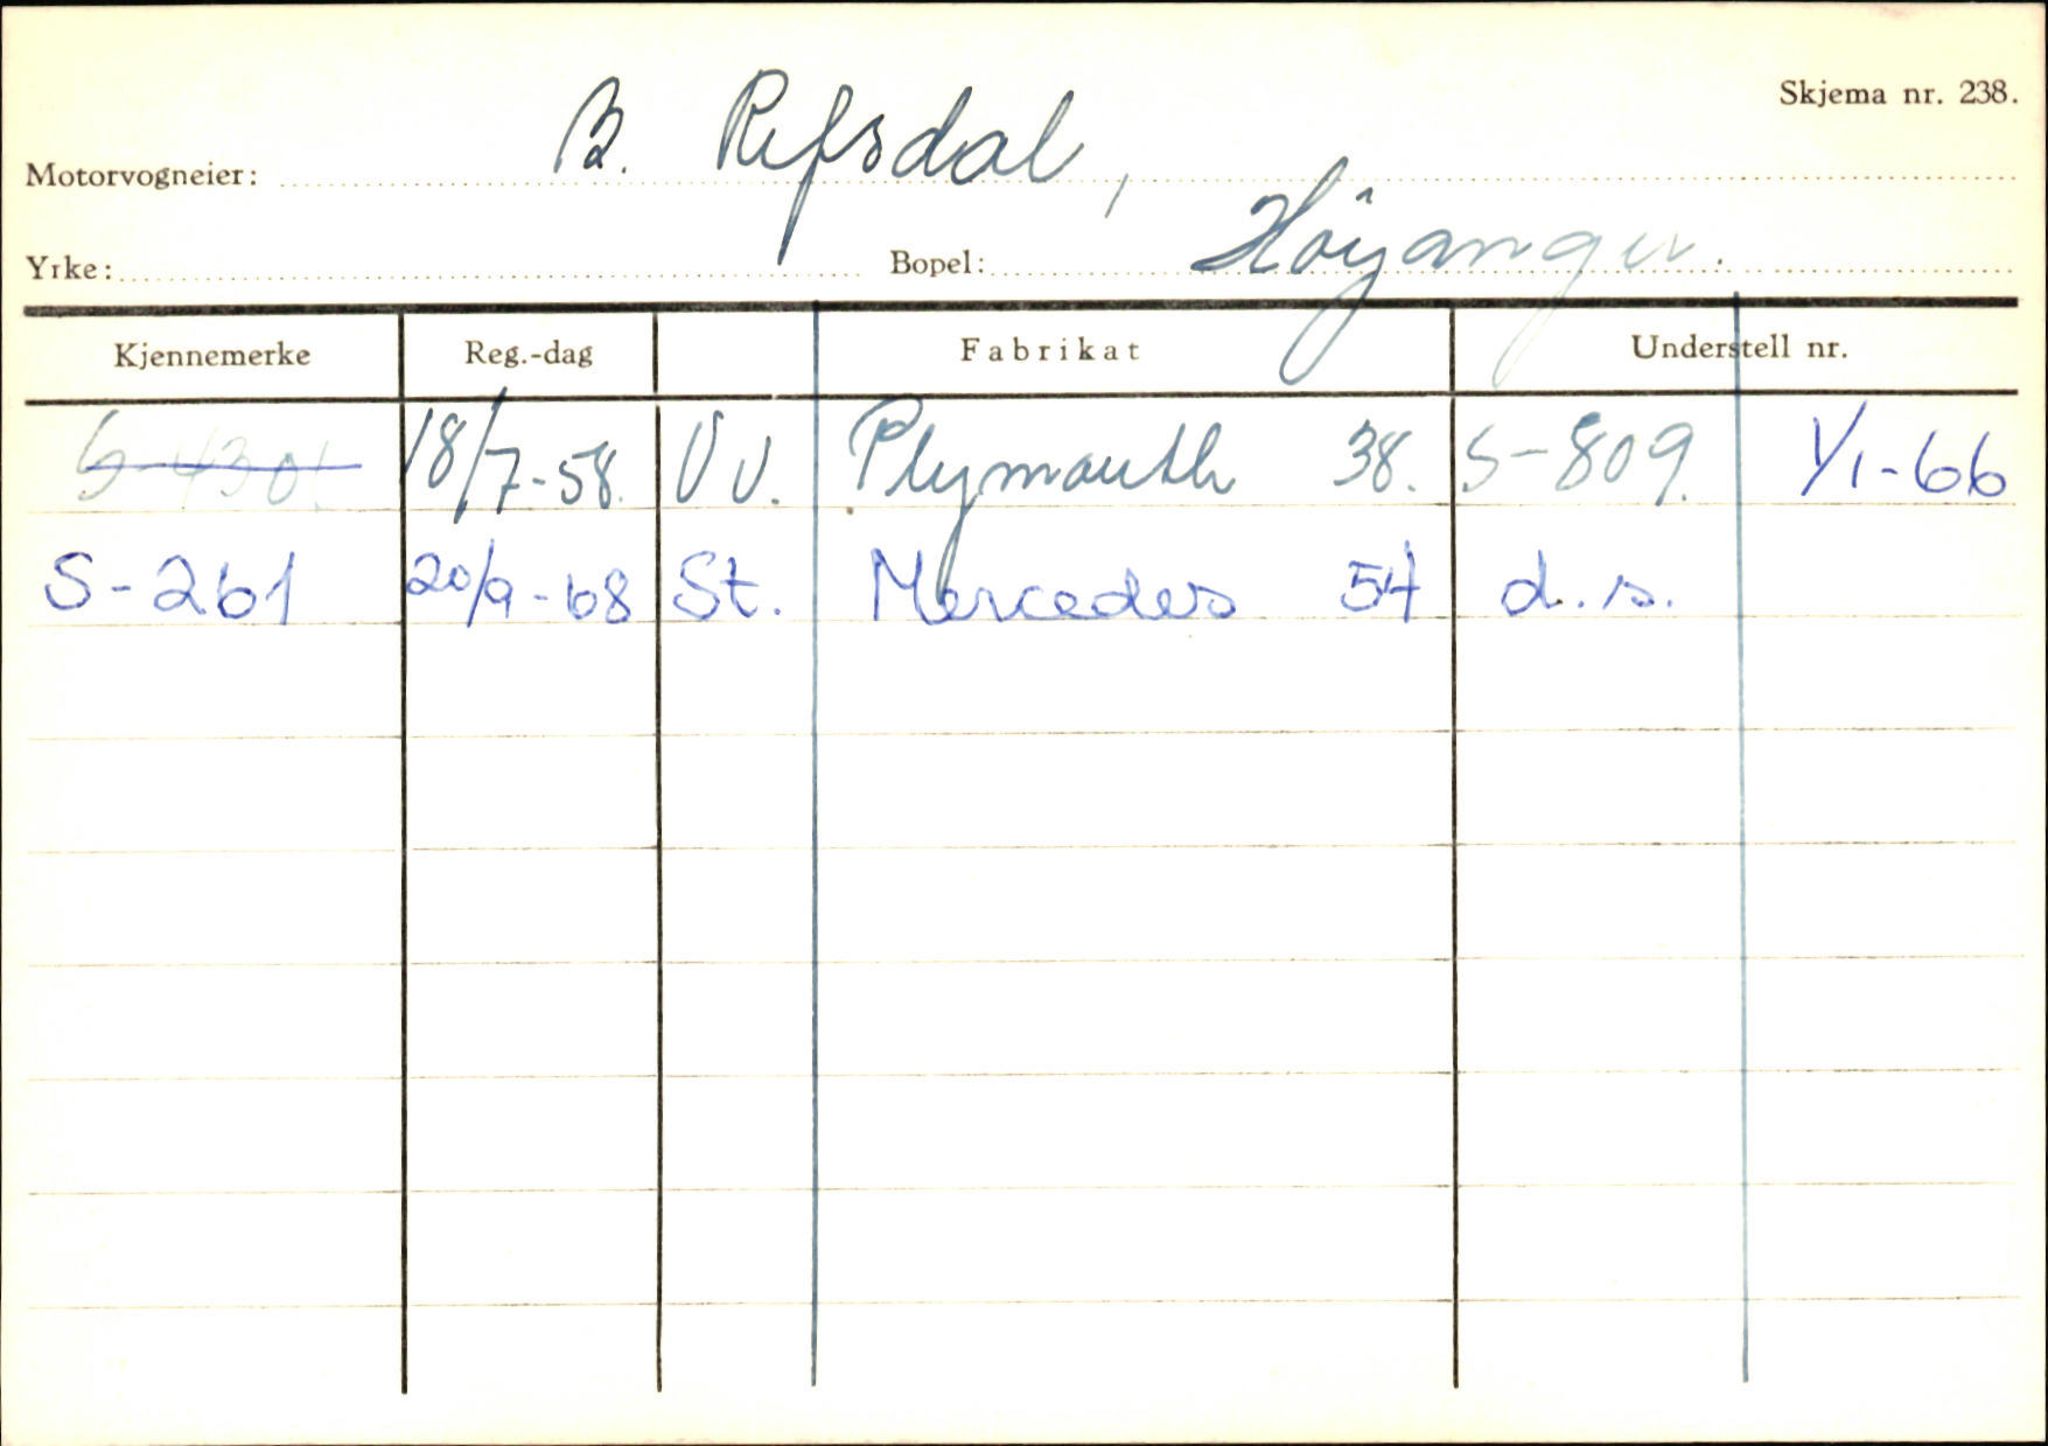 Skjema nr. 238.
Motorvogneier: B. Refsdal,
Yrke: Bopel: Höyanger.
Kjennemerke Reg.-dag Fabrikat Understell nr.
S-4301 18/7-58. V v. Plymouth 38. S-809. 1/1-66
S-261 20/9-68 St. Mercedes 54 d.s.